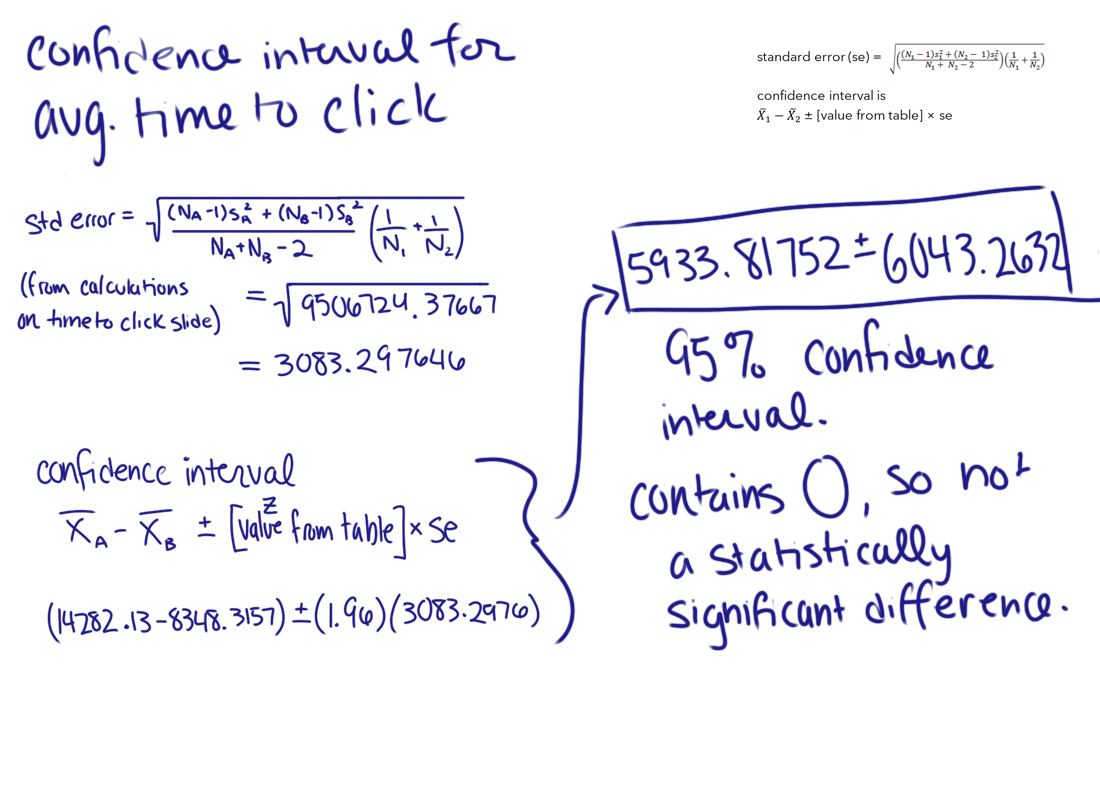 confidence interval for
avg. time to click
standard error (se) = √(((N₁ − 1)s₁² + (N₂ − 1)s₂²)/(N₁ + N₂ − 2))(1/N₁ + 1/N₂)
confidence interval is
X̄₁ − X̄₂ ± [value from table] × se
Std error = √((N_A -1)S_A² + (N_B -1)S_B²)/(N_A + N_B - 2) (1/N₁ + 1/N₂)
(from calculations
on time to click slide)
= √9506724.37667
= 3083.297646
confidence interval
X̄_A - X̄_B ± [z value from table] × se
(14282.13-8348.3157) ± (1.96)(3083.2976)
5933.81752 ± 6043.2632
95% confidence
interval.
contains 0, so not
a statistically
significant difference.